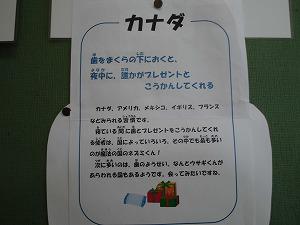 カナダ
歯をまくらの下におくと、
夜中に、誰かがプレゼントと
こうかんしてくれる
カナダ、アメリカ、メキシコ、イギリス、フランス
などみられる習慣です。
寝ている間に歯とプレゼントをこうかんしてくれ
る使者は、国によっていろいろ。その中でも最も多い
のが魔法の国のネズミくん!
次に多いのは、歯のようせい。なんとウサギくんが
あらわれる国もあるようです。会ってみたいですね。